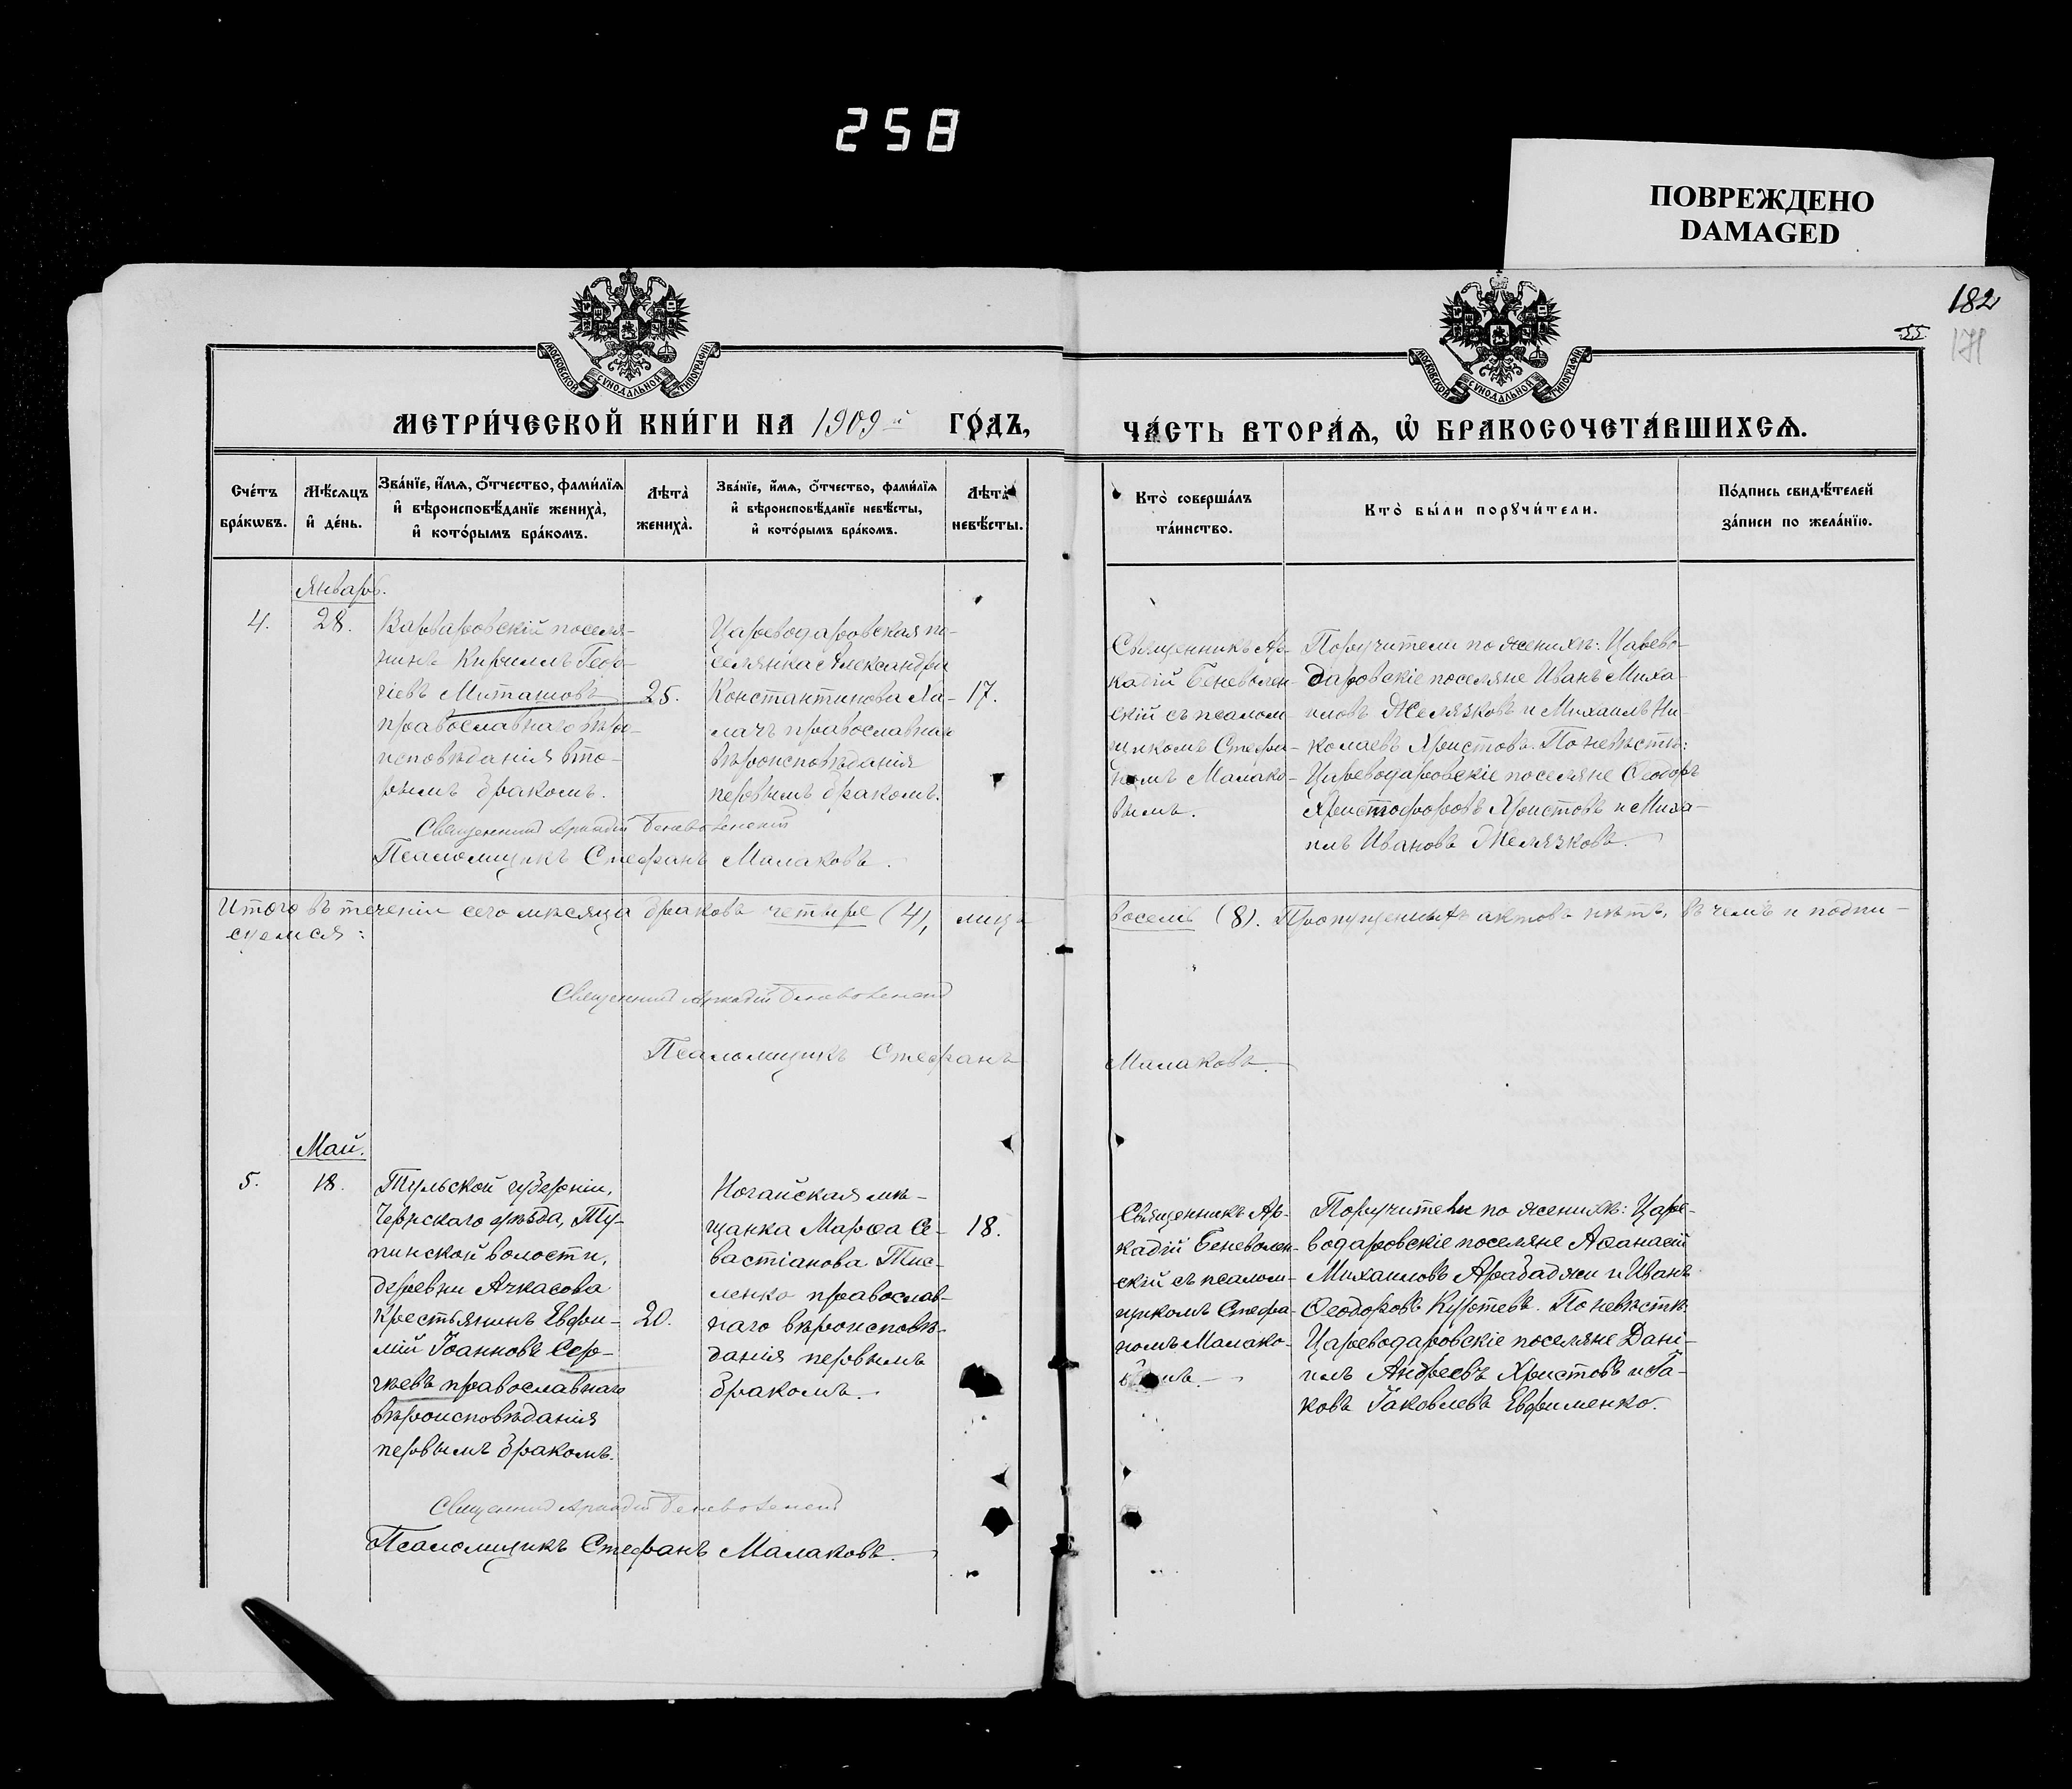 258
ПОВРЕЖДЕНО
DAMAGED
182
171
МОСКОВСКОЙ СѴНОДАЛЬНОЙ ТИПОГРАФІИ
МОСКОВСКОЙ СѴНОДАЛЬНОЙ ТИПОГРАФІИ
МЕТРИ́ЧЕСКОЙ КНИ́ГИ НА 1909й ГО́ДЪ,
ЧА́СТЬ ВТОРА́Ѧ, Ѡ҆ БРАКОСОЧЕТА́ВШИХСѦ.
Сче́тъ
бра́кѡвъ.
Мѣ́сѧцъ
и҆ де́нь.
Зва́нїе, и҆́мѧ, ѻ҆́тчество, фами́лїѧ
и҆ вѣроисповѣ́данїе жениха̀,
и҆ кото́рымъ бра́комъ.
Лѣта̀
жениха̀.
Зва́нїе, и҆́мѧ, ѻ҆́тчество, фами́лїѧ
и҆ вѣроисповѣ́данїе невѣ́сты,
и҆ кото́рымъ бра́комъ.
Лѣта̀
невѣ́сты.
Кто̀ соверша́лъ
та́инство.
Кто̀ бы́ли порꙋчи́тели.
По́дпись свидѣ́телей
за́писи по жела́нїю.
Январь.
4.
28.
Варваровскій поселя-
нинъ Кириллъ Геор-
гіевъ Миташовъ
православнаго вѣро-
исповѣданія вто-
рымъ бракомъ.
25.
Цареводаровская по-
селянка Александра
Константинова Ла-
мачъ православнаго
вѣроисповѣданія
первымъ бракомъ.
17.
Священникъ Ар-
кадій Беневолен-
скій съ псалом-
щикомъ Стефа-
номъ Малако-
вымъ.
Поручители по женихѣ: Царево-
даровскіе поселяне Иванъ Миха-
иловъ Желязковъ и Михаилъ Ни-
колаевъ Христовъ. По невѣстѣ:
Цареводаровскіе поселяне Ѳеодоръ
Христофоровъ Христовъ и Миха-
илъ Ивановъ Желязковъ.
Священникъ Аркадій Беневоленскій
Псаломщикъ Стефанъ Малаковъ.
Итого въ теченіи сего мѣсяца браковъ четыре (4), лицъ восемь (8). Пропущенныхъ актовъ нѣтъ, въ чемъ и подпи-
суемся:
Священникъ Аркадій Беневоленскій
Псаломщикъ Стефанъ Малаковъ.
Май.
5.
18.
Тульской губерніи,
Чернскаго уѣзда, Ту-
пинской волости,
деревни Ачкасова
крестьянинъ Евфи-
мій Іоанновъ Сер-
гѣевъ православнаго
вѣроисповѣданія
первымъ бракомъ.
20.
Ногайская мѣ-
щанка Марѳа Се-
вастіанова Тис-
ленко православ-
наго вѣроисповѣ-
данія первымъ
бракомъ.
18.
Священникъ Ар-
кадій Беневолен-
скій съ псалом-
щикомъ Стефа-
номъ Малако-
вымъ.
Поручители по женихѣ: Царе-
водаровскіе поселяне Аѳанасій
Михаиловъ Арабаджи и Иванъ
Ѳеодоровъ Куртевъ. По невѣстѣ
Цареводаровскіе поселяне Дані-
илъ Андреевъ Христовъ и Іа-
ковъ Іаковлевъ Евфименко.
Священникъ Аркадій Беневоленскій
Псаломщикъ Стефанъ Малаковъ.